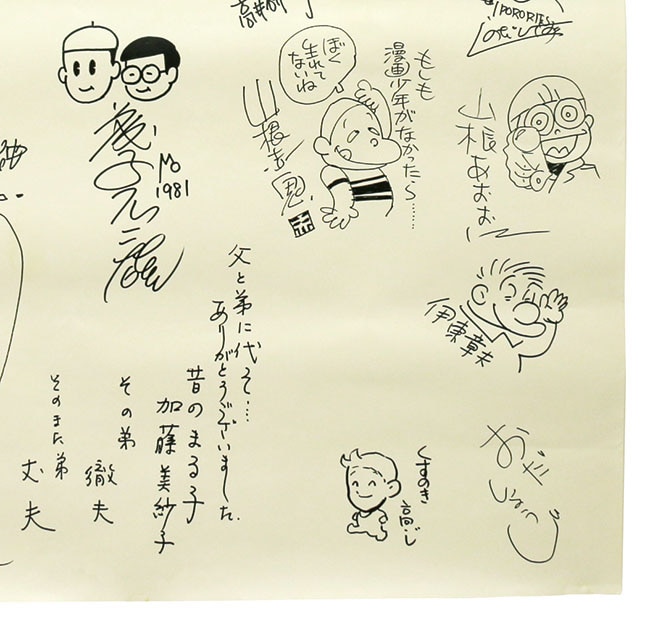 山根あおおに
もしも
漫画少年がなかったら……
ぼく
生れて
ないね
山根赤鬼
藤子不二雄
Mo
1981
伊東章夫
父と弟に代って……
ありがとうございました.
昔のまる子
加藤美紗子
その弟
徹夫
そのまた弟
丈夫
くすのき
高じ